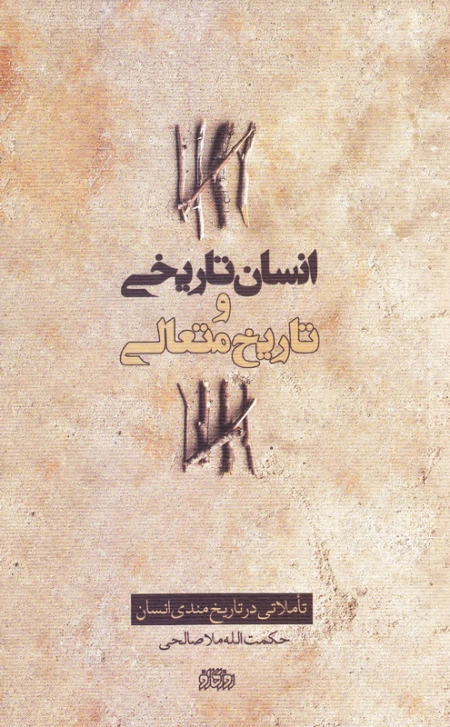 انسان تاریخی
و
تاریخ متعالی
تأملاتی در تاریخ مندی انسان
حکمت الله ملاصالحی